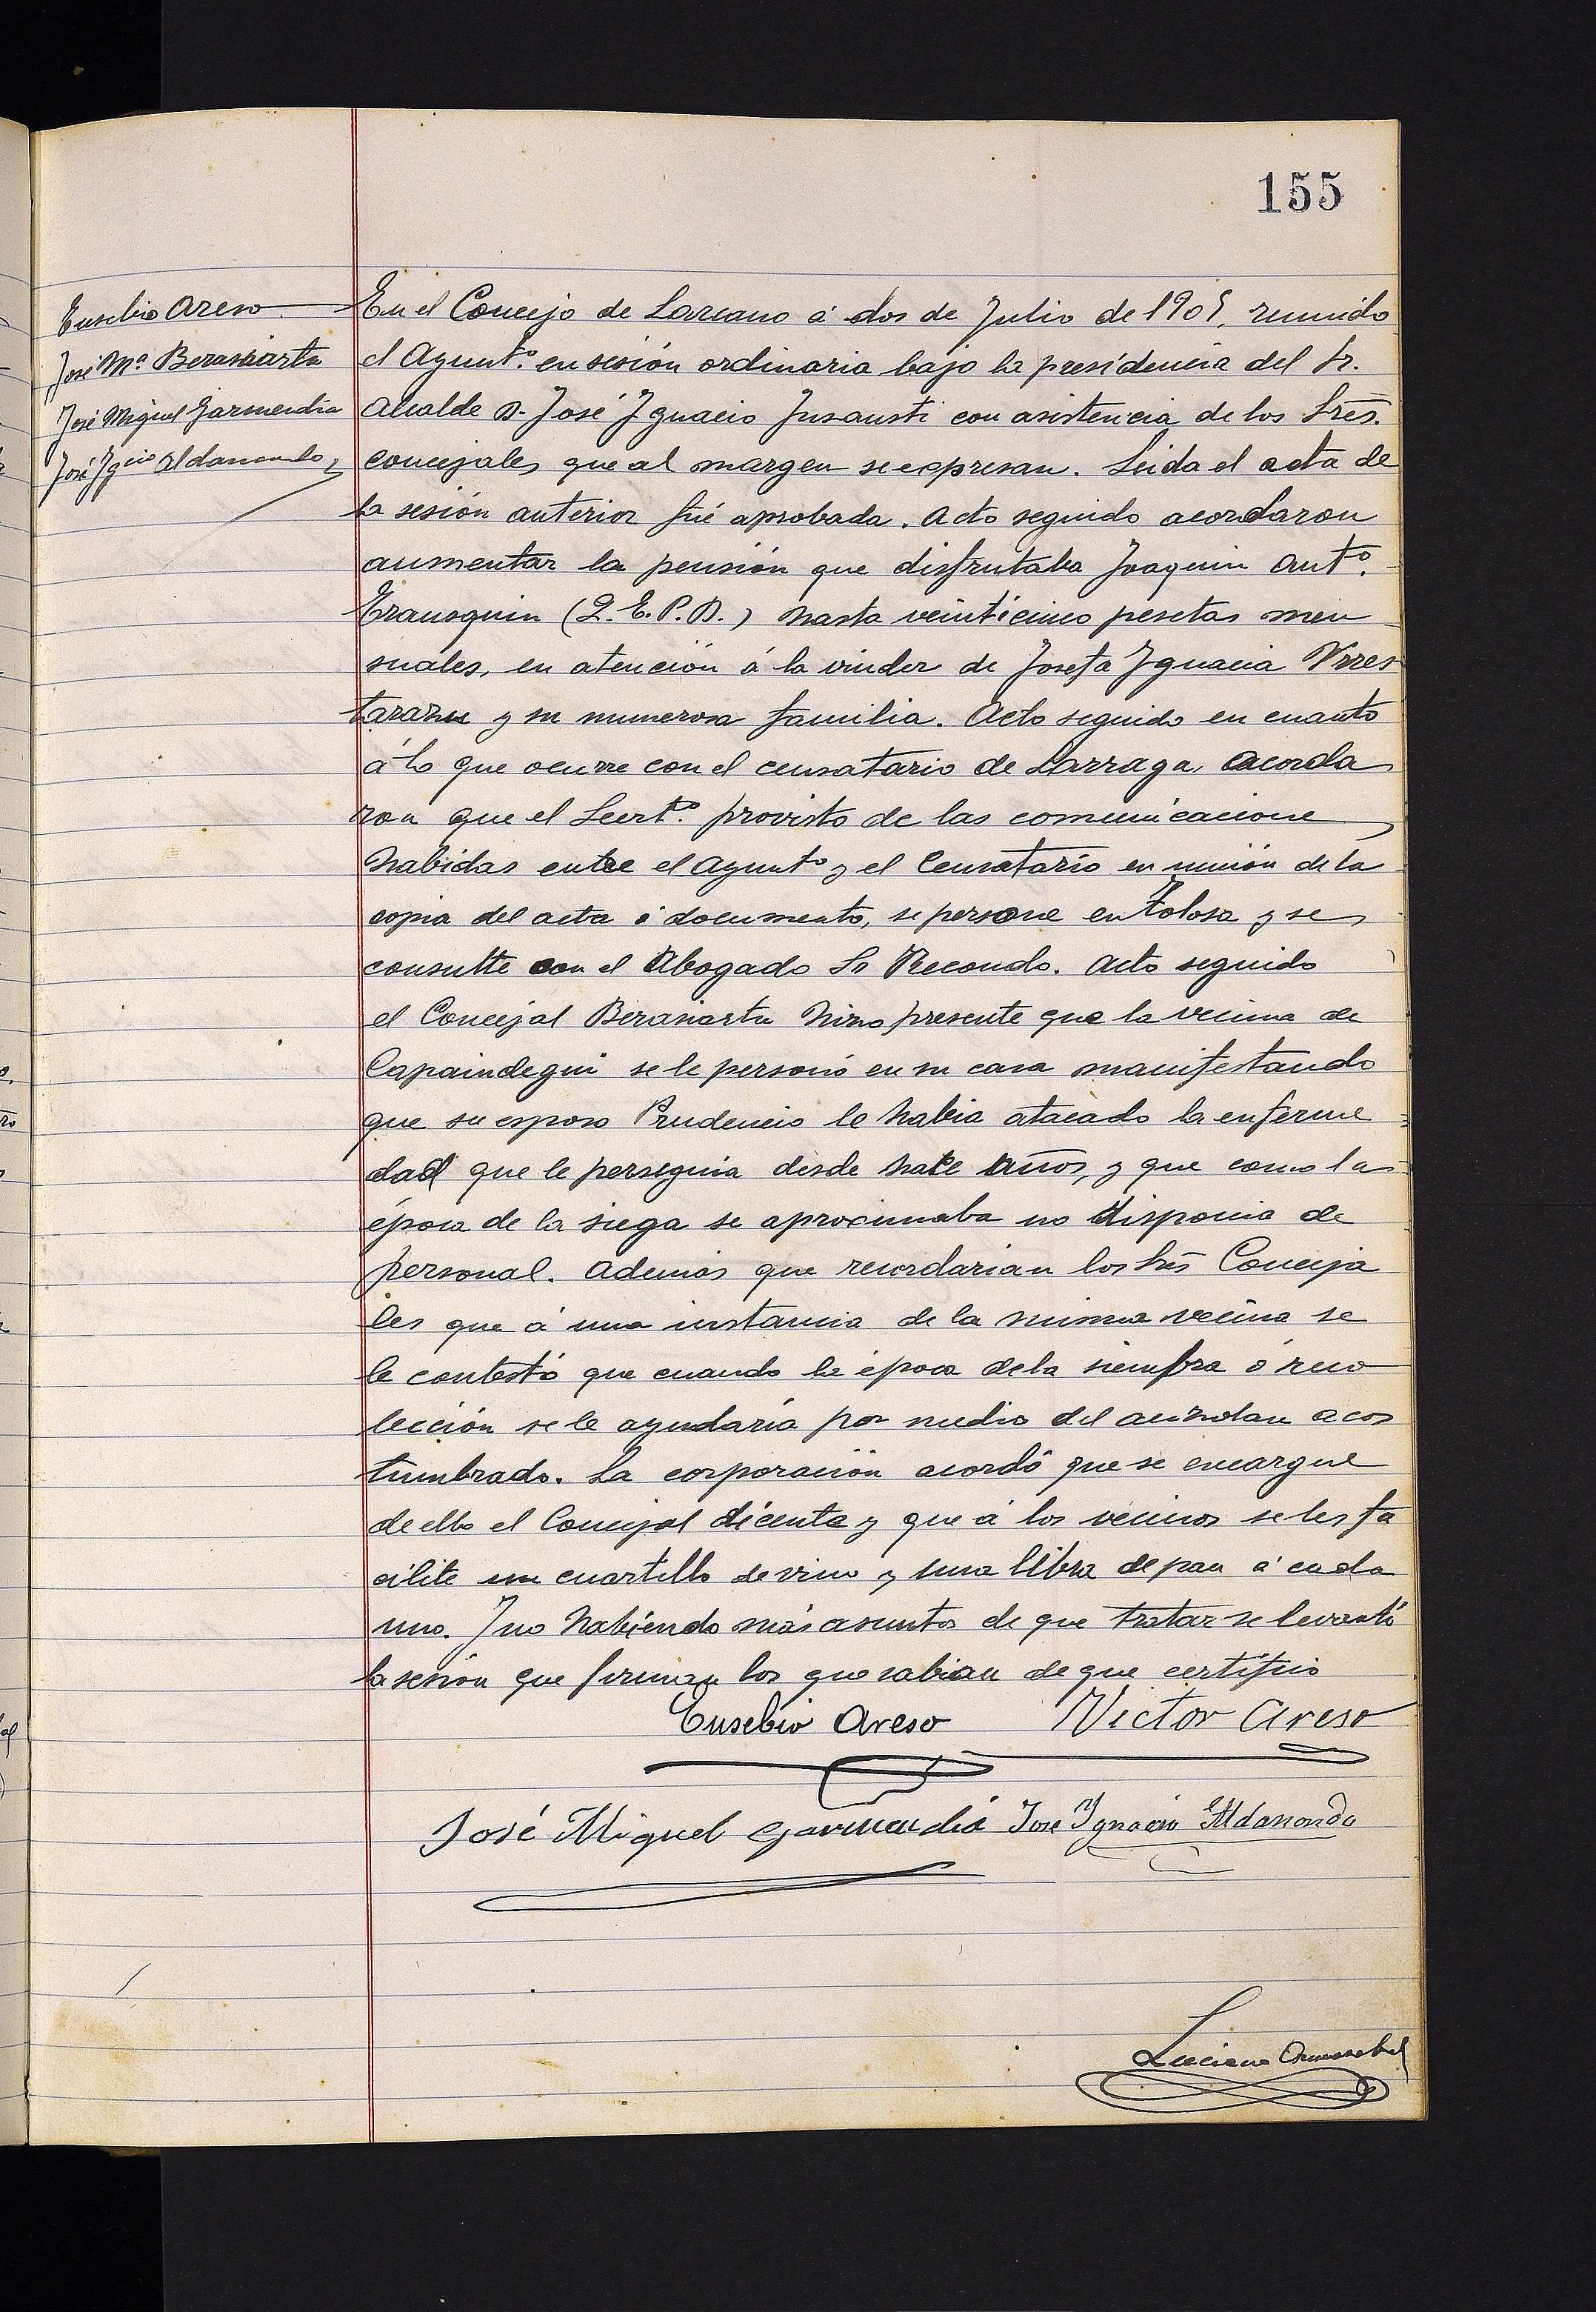 155
Eusebio Areso
José Mª Berasiartu
José Miguel Garmendia
José Ygcio Aldanondo
En el Concejo de Lazcano á dos de Julio de 1905, reunido
el Ayuntº. en sesión ordinaria bajo la presidencia del Sr.
Alcalde D. José Ygnacio Insausti con asistencia de los Sres.
concejales que al margen se expresan. Leida el acta de
la sesión anterior fué aprobada. Acto seguido acordaron
aumentar la pensión que disfrutaba Joaquin Antº.
Erausquin (Q.E.P.D.) hasta veinticinco pesetas men
suales, en atención á la viudez de Josefa Ygnacia Urres
tarazu y su numerosa familia. Acto seguido en cuanto
á lo que ocurre con el censatario de Larraga, acorda
ron que el Secrtº. provisto de las comunicacione
habidas entre el Ayuntº y el Censatario en unión de la
copia del acta ó documento, se persone en Tolosa y se
consulte con el Abogado Sr Recondo. Acto seguido
el Concejal Berasiartu hizo presente que la vecina de
Capaindegui se le personó en su casa manifestando
que su esposo Prudencio le habia atacado la enferme
dad que le perseguia desde hace años, y que como la
época de la siega se aproximaba no disponia de
personal. Además que recordarian los Sres Conceja
les que á una instancia de la misma vecina se
le contestó que cuando la época de la siembra ó reco
lección se le ayudaría por medio del auzolan acos
tumbrado. La corporación acordó que se encargue
de ello el Concejal dicente y que á los vecinos se les fa
cilite un cuartillo de vino y una libra de pan á cada
uno. Y no habiendo más asuntos de que tratar se levantó
la sesión que firman los que sabian de que certifico
Eusebio Areso Victor Areso
José Miguel Garmendia José Ygnacio Aldanondo
Luciano